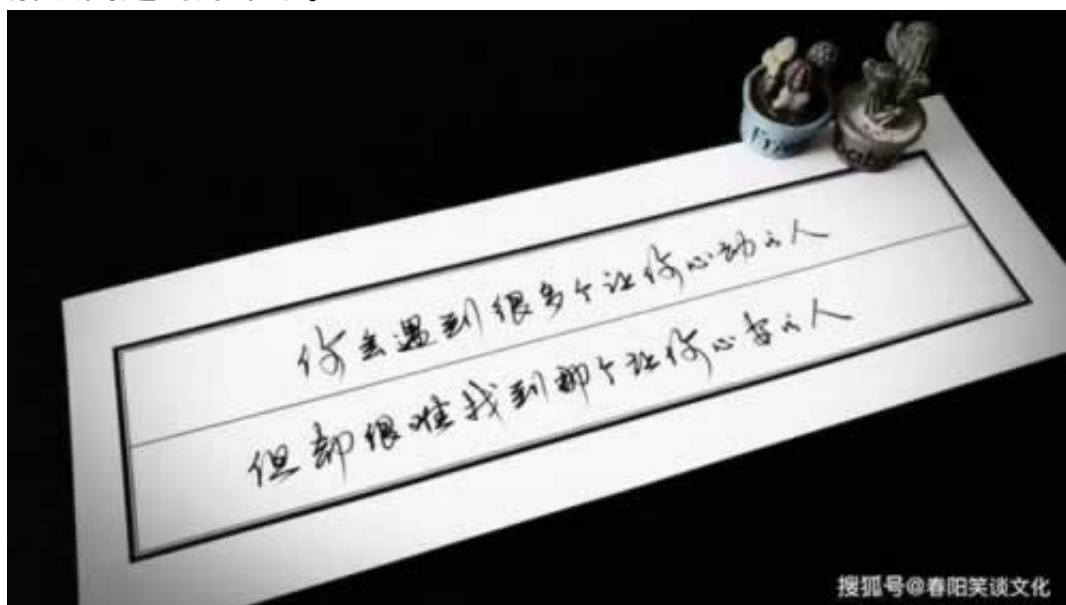 Fre
你会遇到很多个让你心动的人
但却很难找到那个让你心安的人
搜狐号@春阳笑谈文化